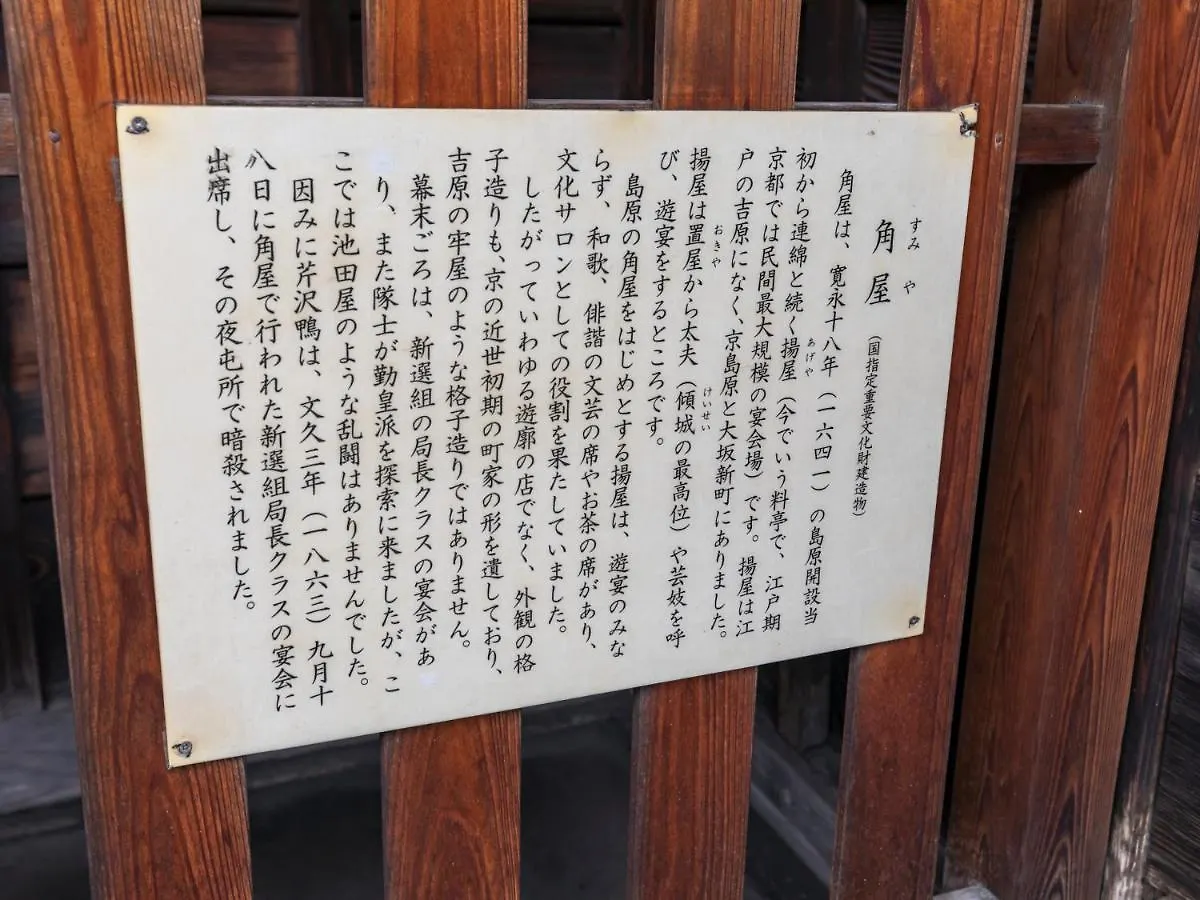 角屋（国指定重要文化財建造物）
すみや
角屋は、寛永十八年（一六四一）の島原開設当
初から連綿と続く揚屋（今でいう料亭で、江戸期
あげや
京都では民間最大規模の宴会場）です。揚屋は江
戸の吉原になく、京島原と大坂新町にありました。
揚屋は置屋から太夫（傾城の最高位）や芸妓を呼
おきや
けいせい
び、遊宴をするところです。
島原の角屋をはじめとする揚屋は、遊宴のみな
らず、和歌、俳諧の文芸の席やお茶の席があり、
文化サロンとしての役割を果たしていました。
したがっていわゆる遊廓の店でなく、外観の格
子造りも、京の近世初期の町家の形を遺しており、
吉原の牢屋のような格子造りではありません。
幕末ごろは、新選組の局長クラスの宴会があ
り、また隊士が勤皇派を探索に来ましたが、こ
こでは池田屋のような乱闘はありませんでした。
因みに芹沢鴨は、文久三年（一八六三）九月十
八日に角屋で行われた新選組局長クラスの宴会に
出席し、その夜屯所で暗殺されました。